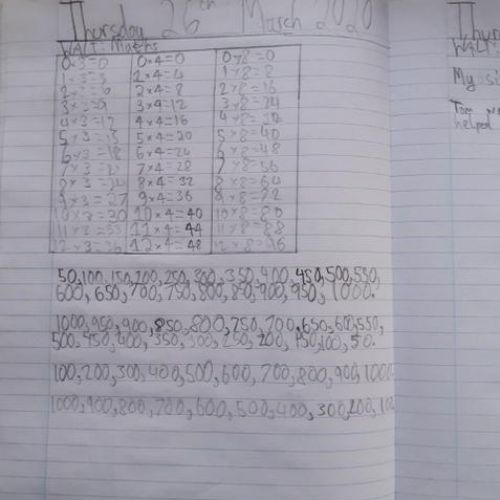 Thursday 26th March 2020
WALT: Maths
0×3=0 0×4=0 0×8=0
1×3=3 1×4=4 1×8=8
2×3=6 2×4=8 2×8=16
3×3=9 3×4=12 3×8=24
4×3=12 4×4=16 4×8=32
5×3=15 5×4=20 5×8=40
6×3=18 6×4=24 6×8=48
7×3=21 7×4=28 7×8=56
8×3=24 8×4=32 8×8=64
9×3=27 9×4=36 9×8=72
10×3=30 10×4=40 10×8=80
11×3=33 11×4=44 11×8=88
12×3=36 12×4=48 12×8=96
50,100,150,200,250,300,350,400,450,500,550,
600,650,700,750,800,80,900,950,1000.
1000,950,900,850,800,750,700,650,600,550,
500,450,400,350,300,250,200,150,100,50.
100,200,300,400,500,600,700,800,900,1000
1000,900,800,700,600,500,400,300,200,100
Thurs
WALT:
My si
helped